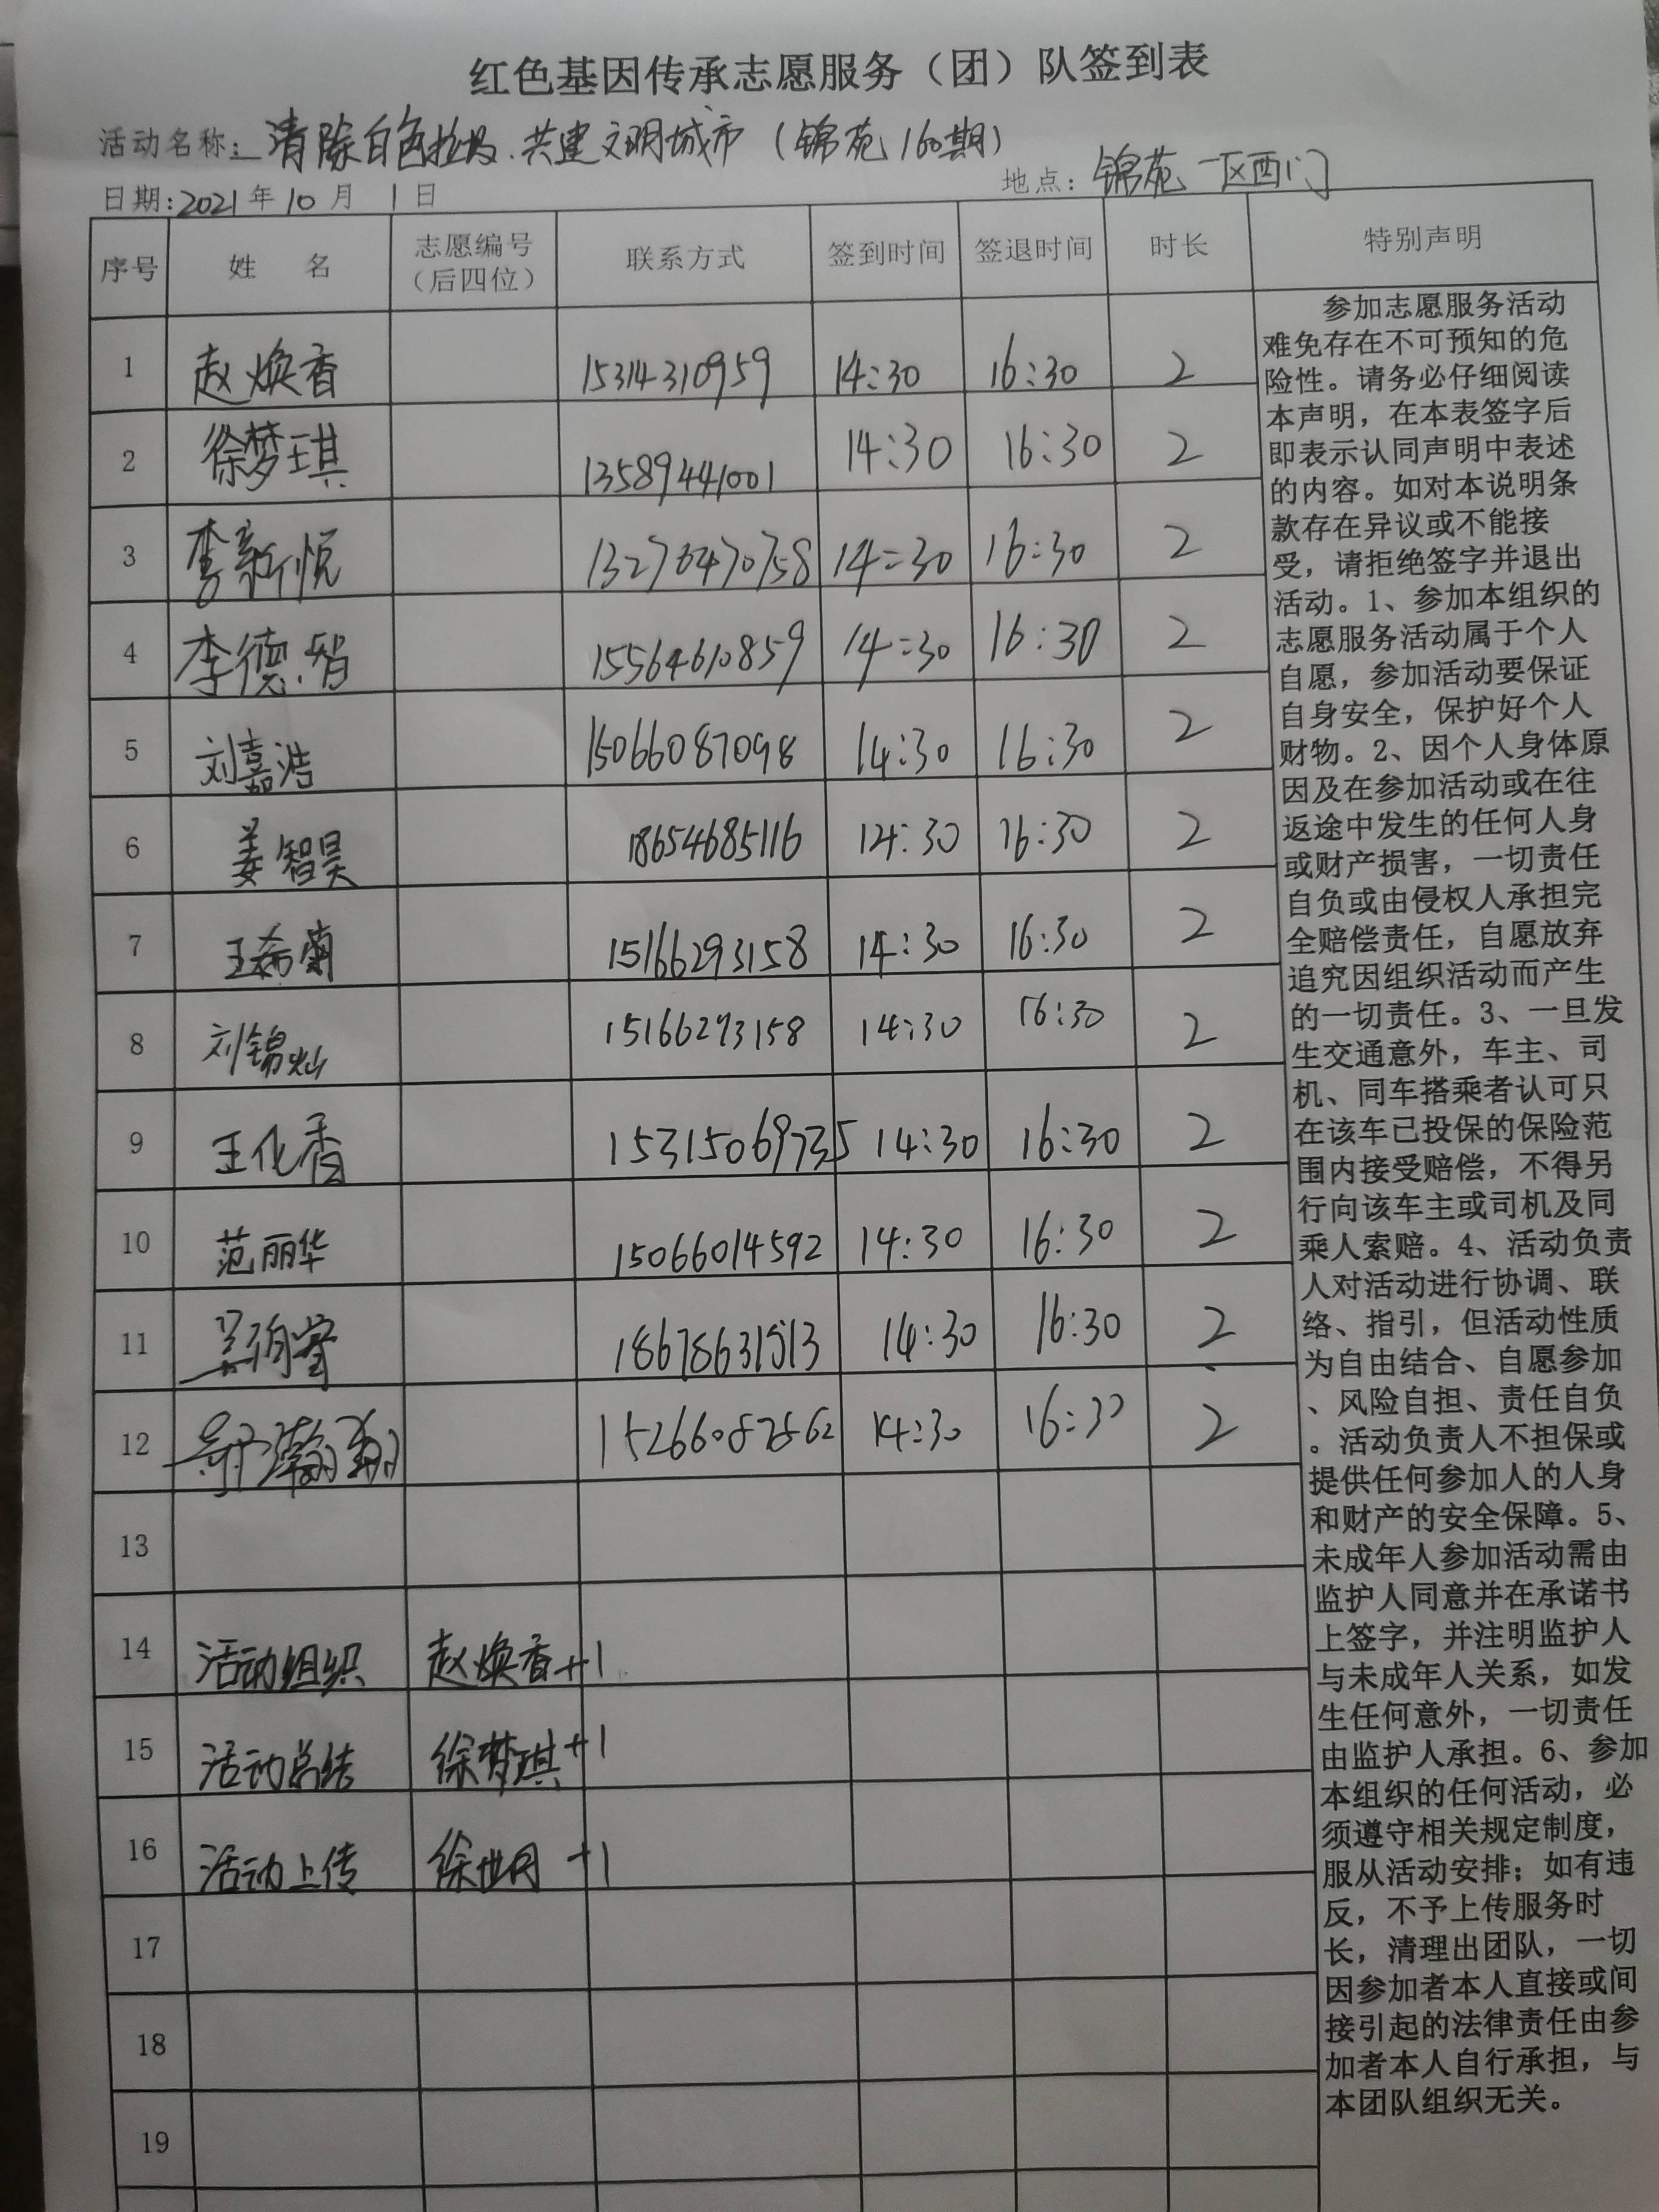 红色基因传承志愿服务（团）队签到表
活动名称：清除白色垃圾.共建文明城市（锦苑160期）
日期：2021年10月1日 地点：锦苑一区西门
序号 姓 名 志愿编号（后四位） 联系方式 签到时间 签退时间 时长 特别声明
1 赵焕香 15314310959 14:30 16:30 2
2 徐梦琪 13589441001 14:30 16:30 2
3 李新悦 13276470758 14:30 16:30 2
4 李德智 15564610859 14:30 16:30 2
5 刘嘉浩 15066087098 14:30 16:30 2
6 姜智昊 18654685116 14:30 16:30 2
7 王希菊 15166293158 14:30 16:30 2
8 刘锦灿 15166293158 14:30 16:30 2
9 王化香 15315069735 14:30 16:30 2
10 范丽华 15066014592 14:30 16:30 2
11 18678631513 14:30 16:30 2
12 14:30 16:30 2
13
14 活动组织 赵焕香+1
15 活动总结 徐梦琪+1
16 活动上传 徐世同 +1
17
18
19
参加志愿服务活动
难免存在不可预知的危
险性。请务必仔细阅读
本声明，在本表签字后
即表示认同声明中表述
的内容。如对本说明条
款存在异议或不能接
受，请拒绝签字并退出
活动。1、参加本组织的
志愿服务活动属于个人
自愿，参加活动要保证
自身安全，保护好个人
财物。2、因个人身体原
因及在参加活动或在往
返途中发生的任何人身
或财产损害，一切责任
自负或由侵权人承担完
全赔偿责任，自愿放弃
追究因组织活动而产生
的一切责任。3、一旦发
生交通意外，车主、司
机、同车搭乘者认可只
在该车已投保的保险范
围内接受赔偿，不得另
行向该车主或司机及同
乘人索赔。4、活动负责
人对活动进行协调、联
络、指引，但活动性质
为自由结合、自愿参加
、风险自担、责任自负
。活动负责人不担保或
提供任何参加人的人身
和财产的安全保障。5、
未成年人参加活动需由
监护人同意并在承诺书
上签字，并注明监护人
与未成年人关系，如发
生任何意外，一切责任
由监护人承担。6、参加
本组织的任何活动，必
须遵守相关规定制度，
服从活动安排；如有违
反，不予上传服务时
长，清理出团队，一切
因参加者本人直接或间
接引起的法律责任由参
加者本人自行承担，与
本团队组织无关。